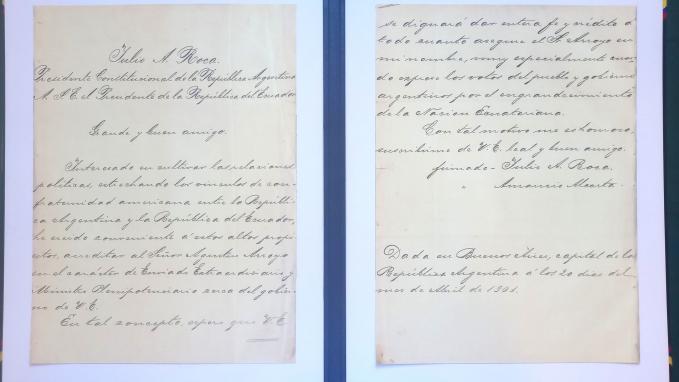 Julio A. Roca.
Presidente Constitucional de la República Argentina
A S. E. el Presidente de la República del Ecuador
Grande y buen amigo.
Interesado en cultivar las relaciones
políticas, estrechando los vínculos de con-
fraternidad americana entre la Repúbli-
ca Argentina y la República del Ecuador,
he creido conveniente á estos altos propó-
sitos, acreditar al Señor Agustin Arroyo
en el carácter de Enviado Extraordinario y
Ministro Plenipotenciario cerca del gobier-
no de V. E.
En tal concepto, espero que V. E.
se dignará dar entera fe y crédito á
todo cuanto asegure el S. Arroyo en
mi nombre, y muy especialmente cuan-
do exprese los votos del pueblo y gobierno
argentinos por el engrandecimiento
de la Nacion Ecuatoriana.
Con tal motivo me es honroso,
suscribirme de V. E. leal y buen amigo.
firmado - Julio A. Roca.
" Amancio Alcorta.
Dada en Buenos Aires, capital de la
República Argentina á los 20 dias del
mes de Abril de 1901.